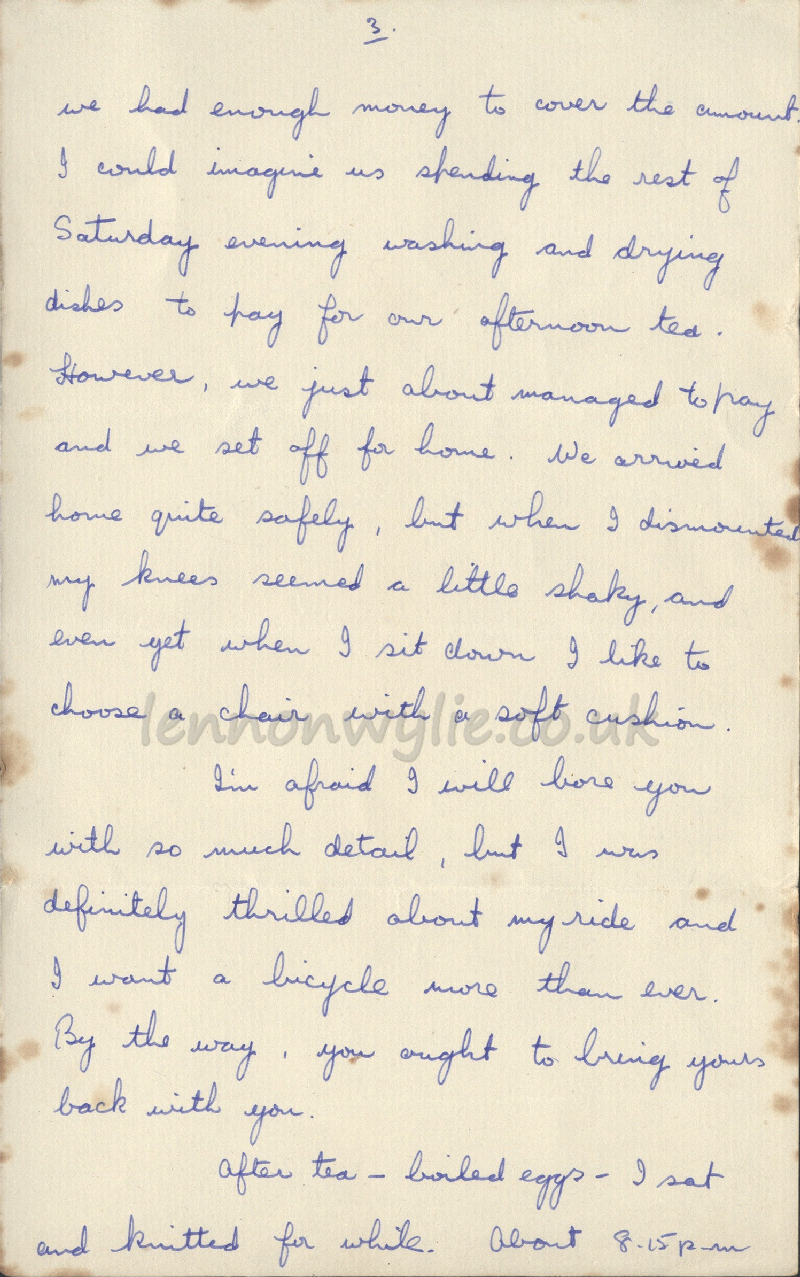 3.
we had enough money to cover the amount.
I could imagine us spending the rest of
Saturday evening washing and drying
dishes to pay for our afternoon tea.
However, we just about managed to pay
and we set off for home. We arrived
home quite safely, but when I dismounted
my knees seemed a little shaky, and
even yet when I sit down I like to
choose a chair with a soft cushion.
lennonwylie.co.uk
I'm afraid I will bore you
with so much detail, but I was
definitely thrilled about my ride and
I want a bicycle more than ever.
By the way, you ought to bring yours
back with you.
After tea - boiled eggs - I sat
and knitted for while. About 8.15 p-m